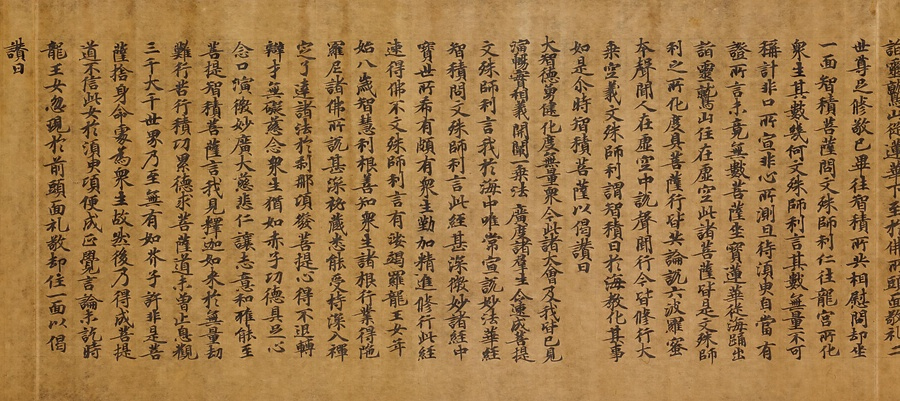 詣靈鷲山從蓮華下至於佛所頭面敬礼二
世尊之修敬已畢往智積所共相慰問却坐
一面智積菩薩問文殊師利仁往龍宮所化
衆生其數幾何文殊師利言其數無量不可
稱計非口所宣非心所測且待湏臾自當有
證所言未竟無數菩薩坐寶蓮華從海踊出
詣靈鷲山住在虛空此諸菩薩皆是文殊師
利之所化度具菩薩行皆共論說六波羅蜜
本聲聞人在虛空中說聲聞行今皆修行大
乘空義文殊師利謂智積曰於海教化其事
如是尒時智積菩薩以偈讃曰
大智德勇健化度無量衆今此諸大會及我皆已見
演暢實相義開闡一乘法廣度諸羣生令速成菩提
文殊師利言我於海中唯常宣說妙法華經
智積問文殊師利言此經甚深微妙諸經中
寶世所希有頗有衆生勤加精進修行此經
速得佛不文殊師利言有娑竭羅龍王女年
始八歲智慧利根善知衆生諸根行業得陁
羅尼諸佛所說甚深秘藏悉能受持深入禪
定了達諸法於刹那頃發菩提心得不退轉
辯才無礙慈念衆生猶如赤子功德具足心
念口演微妙廣大慈悲仁讓志意和雅能至
菩提智積菩薩言我見釋迦如來於無量劫
難行苦行積功累德求菩薩道未曾止息觀
三千大千世界乃至無有如芥子許非是菩
薩捨身命處爲衆生故然後乃得成菩提
道不信此女於湏臾頃便成正覺言論未訖時
龍王女忽現於前頭面礼敬却住一面以偈
讃曰